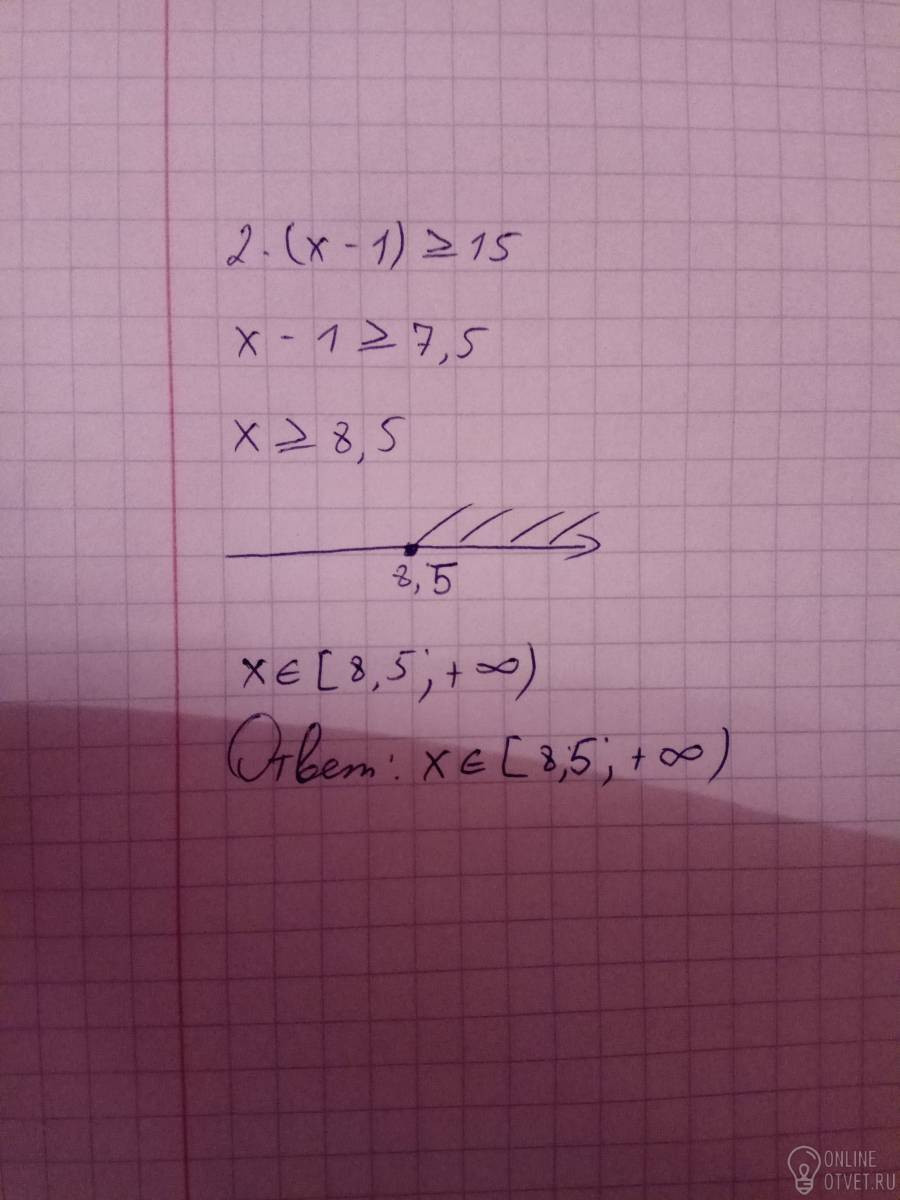 2·(x-1) ≥ 15
x - 1 ≥ 7,5
x ≥ 8,5
8,5
x ∈ [8,5; +∞)
Ответ: x ∈ [8,5; +∞)
ONLINE
OTVET.RU